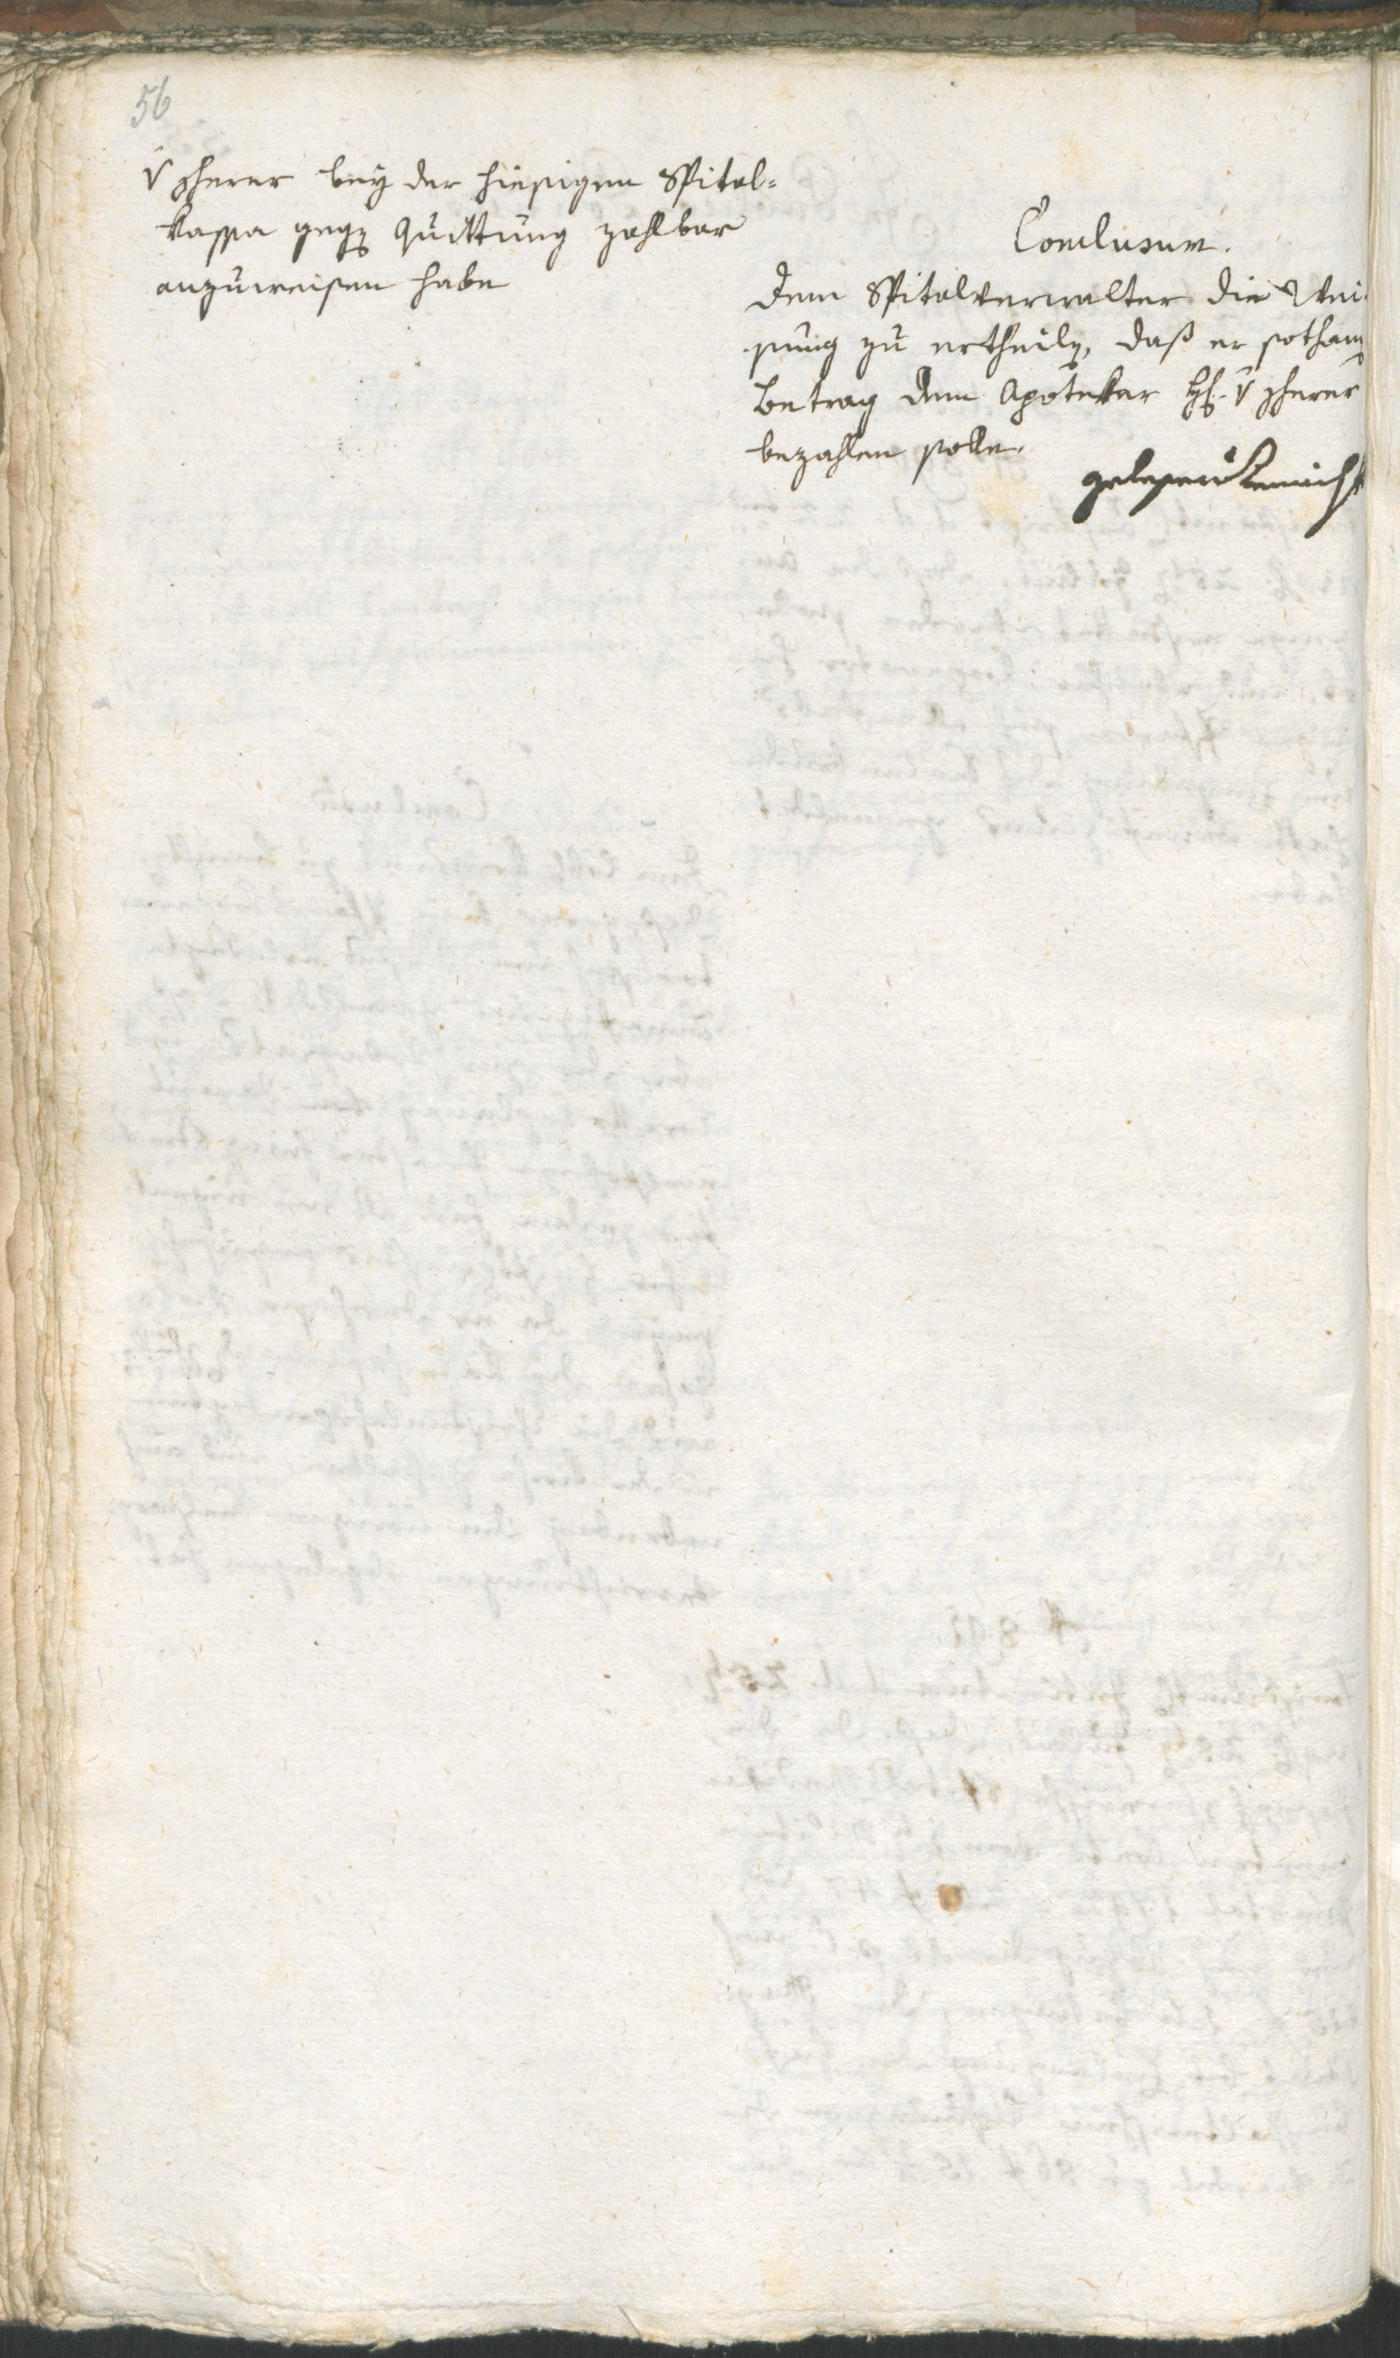 56
bey der hiesigen Spital-
kassa gegen Quittung zahlbar
anzuweisen habe
Conclusum.
Dem Spitalverwalter die Wei-
sung zu ertheilen, daß er sothanen
Betrag dem Apoteker H.
bezahlen solle.